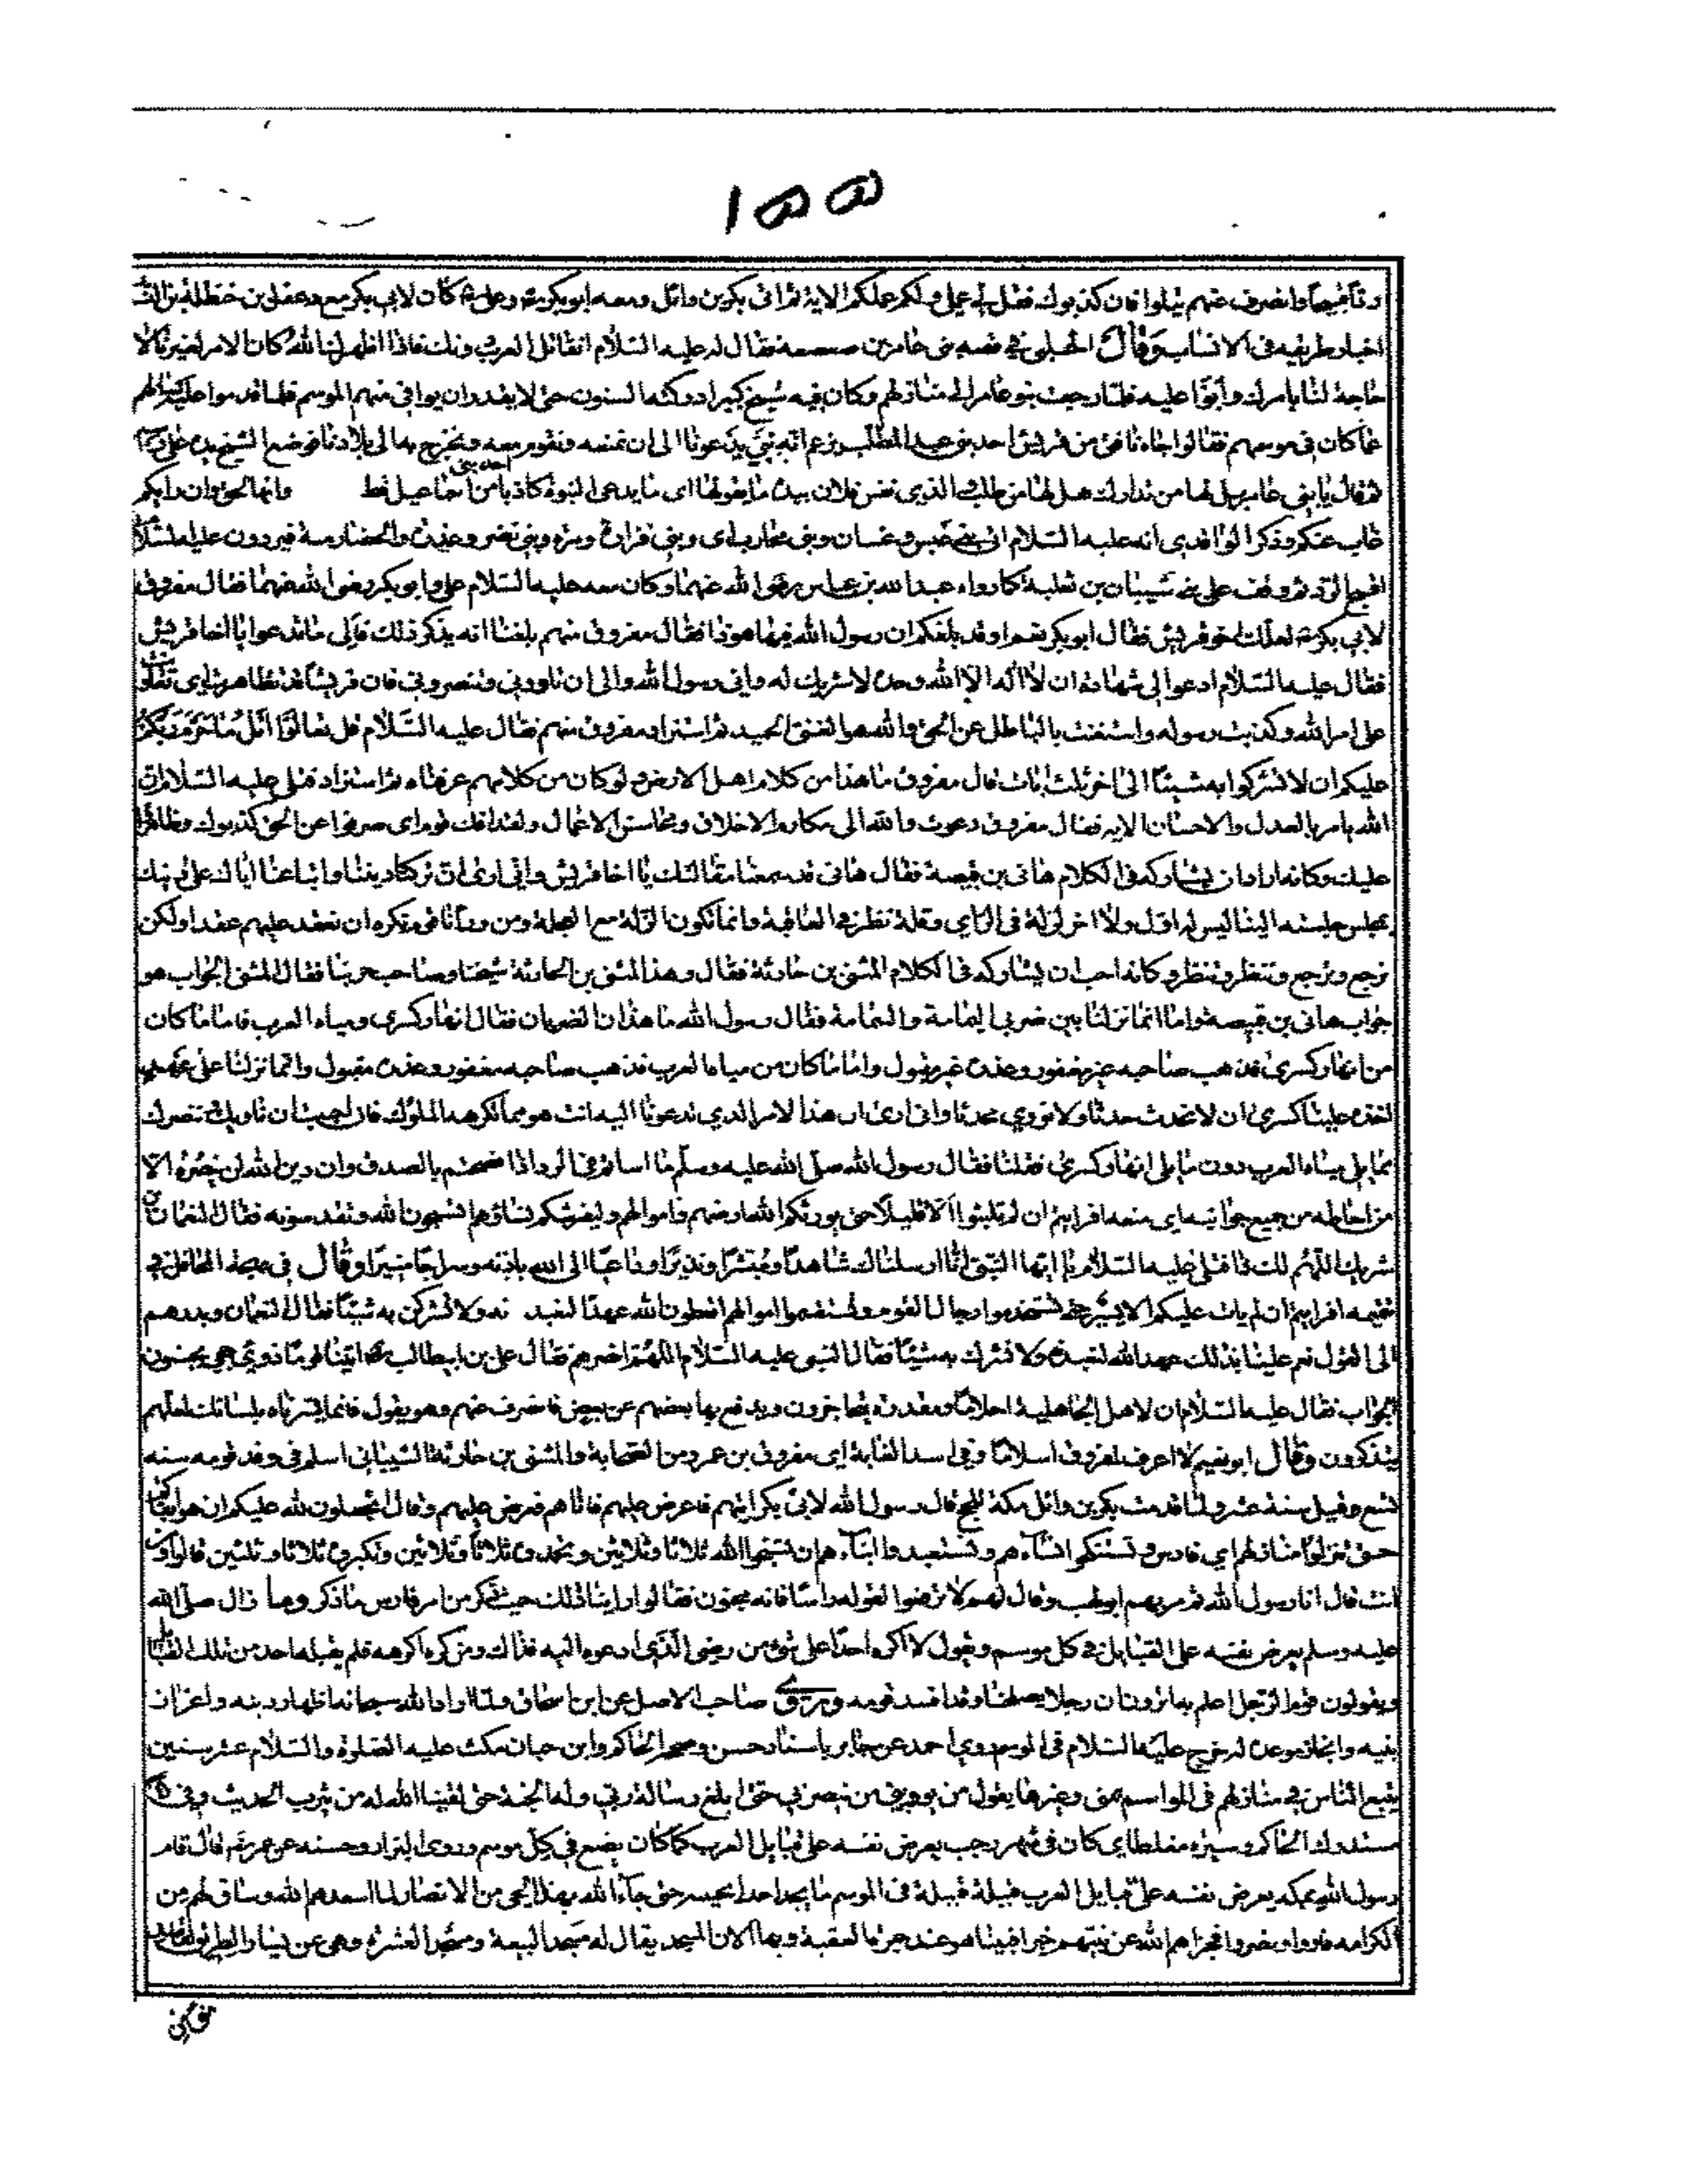 ١٥٥
وانصرف عنهم يتلوا فان كذبوك فقل لي عملي ولكم عملكم الاية ثم اتى بكر بن وائل ومعه ابو بكر وعلي كان لابي بكر مع دغفل بن حنظلة
اخبار طريفه فى الانساب وقال الحلبى في قصه بنى عامر بن صعصعة فقال له عليه السلام انقاتل العرب دونك فاذا اظهرك الله كان الامر لغيرنا لا
حاجة لنا بامرك وأبوا عليه فلما رجعت بنو عامر الى منازلهم وكان فيه شيخ كبير ادركته السنون حتى لا يقدر ان يوافى معهم الموسم فلما قدموا عليه سألهم
عما كان فى موسمهم فقالوا جاءنا فتى من قريش احد بنى عبد المطلب يزعم انه نبي يدعونا الى ان نمنعه ونقوم معه ونخرج به الى بلادنا فوضع الشيخ يده على
ثم قال يا بنى عامر هل لها من تدارك هل لها من مطلب والذي نفس فلان بيده ما يقولها اى ما يدعى النبوة كاذبا احد من بنى اسماعيل قط وانها لحق وان رايكم
غاب عنكم وذكر الواقدى انه عليه السلام اتى بنى عبس وغسان وبنى محارب اى وبنى فزارة ومرة وبنى نضر وعذرة والحضارمة فيردون عليه
اقبح الرد ثم وقف على بنى شيبان بن ثعلبة كما رواه عبد الله بن عباس رضى الله عنهما وكان معه عليه السلام على وابو بكر رضى الله عنهما فقال مفروق
لابي بكر لعلك اخو قريش فقال ابو بكر نعم او قد بلغكم ان رسول الله فيها هوذا فقال مفروق منهم بلغنا انه يذكر ذلك فالى ما تدعوا يا اخا قريش
فقال عليه السلام ادعوا الى شهادة ان لا اله الا الله وحده لا شريك له وانى رسول الله والى ان تاوونى وتنصرونى فان قريشا قد تظاهرت اى تعاونت
على امر الله وكذبت رسوله واستغنت بالباطل عن الحق والله هو الغنى الحميد ثم استزاد مفروق منهم فقال عليه السلام قل تعالوا اتل ما حرم ربكم
عليكم ان لا تشركوا به شيئا الى اخر ثلث ايات قال مفروق ما هذا من كلام اهل الارض ولو كان من كلامهم عرفناه ثم استزاد فتلى عليه السلام ان
الله يامر بالعدل والاحسان الاية فقال مفروق دعوت والله الى مكارم الاخلاق ومحاسن الاعمال ولقد افك قوم اى صرفوا عن الحق كذبوك وظاهروا
عليك وكانه اراد ان يشاركه فى الكلام هانى بن قبيصة فقال هانى قد سمعنا مقالتك يا اخا قريش وانى ارى ان تركنا ديننا واتباعنا اياك على دينك
بمجلس جلسته الينا ليس له اول ولا اخر لزلة فى الراي وقلة نظر فى العاقبة وانما تكون الزلة مع العجلة ومن ورائنا قوم نكره ان نعقد عليهم عقدا ولكن
نرجع وترجع وننظر وتنظر وكانه احب ان يشاركه فى الكلام المثنى بن حارثة فقال وهذا المثنى بن الحارثة شيخنا وصاحب حربنا فقال المثنى الجواب هو
جواب هانى بن قبيصة واما انما نزلنا بين ضربي اليمامة والسمامة فقال رسول الله ما هذان الضريان فقال انهار كسرى ومياه العرب فاما ما كان
من انهار كسرى فذهب صاحبه غير مغفور وعذره غير مقبول واما ما كان من مياه العرب فذهب صاحبه مغفور وعذره مقبول وانما نزلنا على عهد
اخذه علينا كسرى ان لا نحدث حدثا ولا نؤوي محدثا وانى ارى ان هذا الامر الذي تدعونا اليه انت هو مما تكرهه الملوك فان احببت ان ناويك وننصرك
مما يلى مياه العرب دون ما يلى انهار كسرى فعلنا فقال رسول الله صلى الله عليه وسلم ما اساتم فى الرد اذا فصحتم بالصدق وان دين الله لن ينصره الا
من احاطه من جميع جوانبه اى منعه افرايتم ان لم تلبثوا الا قليلا حتى يورثكم الله ارضهم واموالهم ويفرشكم نساؤهم اتسبحون الله وتقدسونه فقال النعمان بن
شريك اللهم لك ذا فتلى عليه السلام يا ايها النبى انا ارسلناك شاهدا ومبشرا ونذيرا وداعيا الى الله باذنه وسراجا منيرا وقال فى بهجة المحافل
افرايتم ان لم يات عليكم الا يسير حتى تستخدموا رجال القوم وتستفيئوا اموالهم اتعطون الله عهدا لتعبدنه ولا تشركن به شيئا فقال النعمان
الى القول نعم علينا بذلك عهد الله لنعبدنه ولا نشرك به شيئا فقال النبى عليه السلام اللهم فقال على بن ابيطالب اتينا قوما
الجواب فقال عليه السلام ان لاهل الجاهلية احلاما ومقدرة بها يتحاجزون ويدفع بها بعضهم عن بعض فانصرف عنهم وهو يقول فانما يسرناه بلسانك لعلهم
يتذكرون وقال ابو نعيم لا اعرف لمفروق اسلاما وفى اسد الغابة اى مفروق بن عمرو من الصحابة والمثنى بن حارثة الشيبانى اسلم فى وفد قومه سنه
تسع وقيل سنة عشر ولما قدمت بكر بن وائل مكة للحج قال رسول الله لابى بكر ايتهم فاعرض عليهم فاتاهم فعرض عليهم وقال اتجعلون لله عليكم ان هو ابقاكم
حتى تنزلوا منازلهم اي فارس وتستنكحوا نساءهم وتستعبدوا ابناءهم ان تسبحوا الله ثلاثا وثلاثين وتحمدوه ثلاثا وثلاثين وتكبروه ثلاثا وثلثين قالوا ومن
انت قال انا رسول الله ثم مر بهم ابو لهب وقال لهم لا ترفعوا لقوله راسا فانه مجنون فقالوا راينا ذلك حيث ذكر من امر فارس ما ذكر وما زال صلى الله
عليه وسلم يعرض نفسه على القبايل فى كل موسم ويقول لا اكره احدا على شئ من رضى الذي ادعوه اليه فذاك ومن كره لم اكرهه فلم يقبله احد من تلك القبايل
ويقولون قوم الرجل اعلم به اترون ان رجلا يصلحنا وقد افسد قومه وروى صاحب الاصل عن ابن اسحاق ولما اراد الله سبحانه اظهار دينه واعزاز
نبيه وانجاز موعده له خرج عليه السلام فى الموسم روي احمد عن جابر باسناد حسن وصححه الحاكم وابن حبان مكث عليه الصلوة والسلام عشر سنين
يتبع الناس فى منازلهم فى المواسم بمنى وغيرها يقول من يووينى من ينصرنى حتى ابلغ رسالة ربي وله الجنة حتى لقينا الله له من يثرب الحديث وفى
مستدرك الحاكم وسيرة مغلطاي كان فى شهر رجب يعرض نفسه على قبايل العرب كما كان يصنع في كل موسم وروى البزار وحسنه عن عمر قال قام
رسول الله بمكه يعرض نفسه على قبايل العرب قبيلة قبيلة فى الموسم ما يجد احدا يجيبه حتى جاء الله بهذا الحى من الانصار لما اسعدهم الله وساق لهم من
الكرامه فاووا ونصروا فجزاهم الله عن نبيهم خيرا فبينا هو عند جمرة العقبة وبها الان المسجد يقال له مسجد البيعة ومسجد العشرة وهى عن يسار الطريق